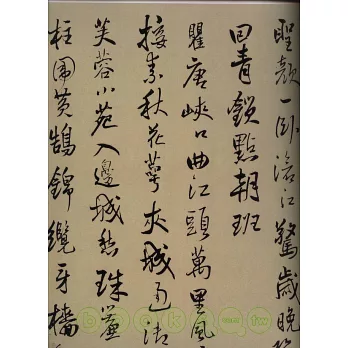 聖顏一卧滄江驚歲晚
回青鎖點朝班
瞿唐峽口曲江頭萬里風
接素秋花萼夾城通御
芙蓉小苑入邊城愁珠簾
柱圍黃鵠錦纜牙檣